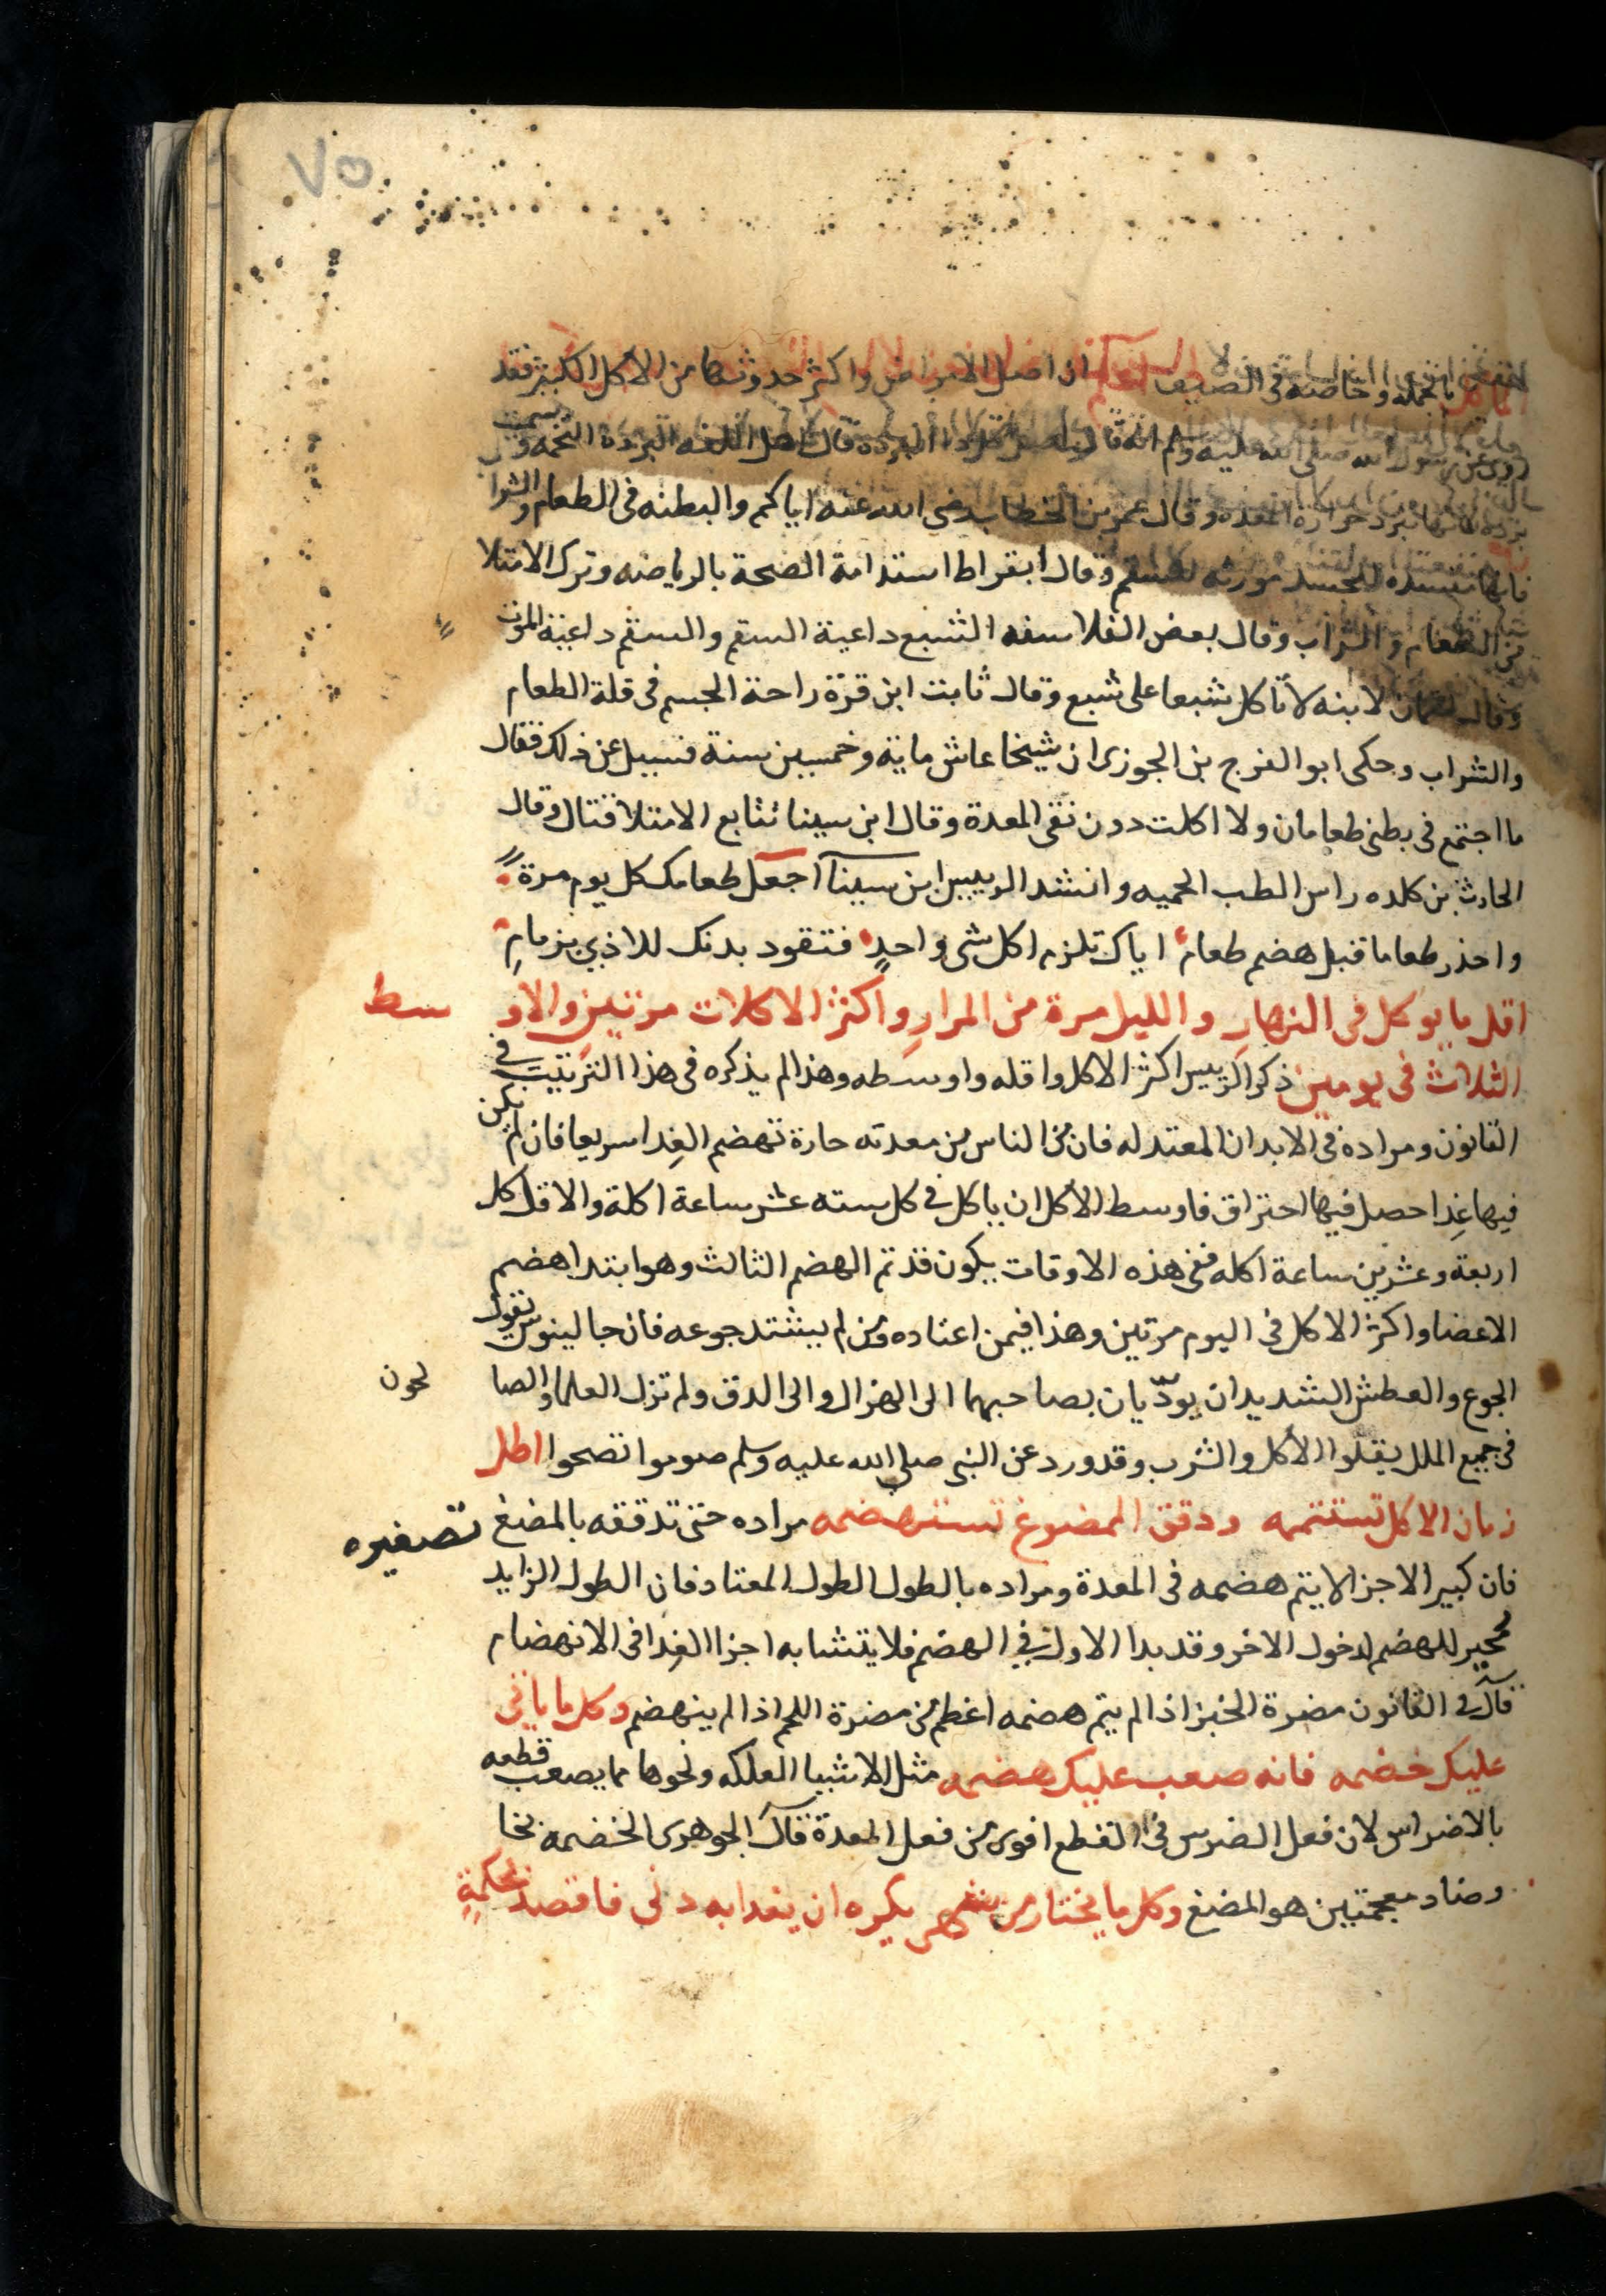 ٧٥
بالجملة وخاصة في الصيف اعلم ان اصل الامراض واكثر حدوثها من الاكل الكثير فقد
روى عن رسول الله صلى الله عليه وسلم انه قال اصل كل دا البردة قال اهل اللغه البردة التخمه وسميت
بردة لانها تبرد حرارة المعده وقال عمر بن الخطاب رضي الله عنه اياكم والبطنه في الطعام والشرا
فانها مفسده للجسد مورثه للسقم وقال ابقراط استدامة الصحة بالرياضه وترك الامتلا
من الطعام والشراب وقال بعض الفلاسفه الشبع داعية السقم والسقم داعية الموت
وقال لقمان لابنه لا تاكل شبعا على شبع وقال ثابت ابن قرة راحة الجسم في قلة الطعام
والشراب وحكى ابو الفرج بن الجوزى ان شيخا عاش ماية وخمسين سنة فسيل عن ذلك فقال
ما اجتمع في بطني طعامان ولا اكلت دون نقى المعدة وقال ابن سينا تتابع الامتلا قتال وقال
الحارث بن كلده راس الطب الحميه وانشد الرييس ابن سينا اجعل طعامك كل يوم مرة
واحذر طعاما قبل هضم طعام اياك تلزم اكل شى واحد فتقود بدنك للاذي بزمام
اقل ما يوكل في النهار والليل مرة من المرار واكثر الاكلات مرتين والاوسط
الثلاث في يومين ذكر الرييس اكثر الاكل واقله واوسطه وهذا لم يذكره في هذا الترتيب في
القانون ومراده في الابدان المعتدله فان من الناس من معدته حارة تهضم الغدا سريعا فان لم يكن
فيها غدا حصل فيها احتراق فاوسط الاكل ان ياكل في كل سته عشر ساعة اكلة والاقل كل
اربعة وعشرين ساعة اكله ففي هذه الاوقات يكون قد تم الهضم الثالث وهو ابتدا هضم
الاعضا واكثر الاكل في اليوم مرتين وهذا فيمن اعتاده ومن لم يشتد جوعه فان جالينوس يقول
الجوع والعطش الشديدان يوديان بصاحبهما الى الهزال والى الدق ولم تزل العلما والصالحون
في جميع الملل يقلوا الاكل والشرب وقد ورد عن النبي صلى الله عليه وسلم صوموا تصحوا اطل
زمان الاكل تستتمه ودقق الممضوغ تستهضمه مراده حتى تدققه بالمضغ تصغيره
فان كبير الاجزا لا يتم هضمه في المعدة ومراده بالطول الطول المعتاد فان الطول الزايد
محير للهضم لدخول الاخر وقد بدا الاول في الهضم فلا يتشابه اجزا الغدا في الانهضام
قال في القانون مضرة الخبز اذا لم يتم هضمه اعظم من مضرة اللحم اذا لم ينهضم وكل ما ياني
عليك خضمه فانه صعب عليك هضمه مثل الاشيا العلكه ونحوها مما يصعب قطعه
بالاضراس لان فعل الضرس في القطع اقوى من فعل المعدة قال الجوهرى الخضمه بخا
وضاد معجمتين هو المضغ وكل ما يختار من يكره ان يغدا به دني فاقصد بحكمة